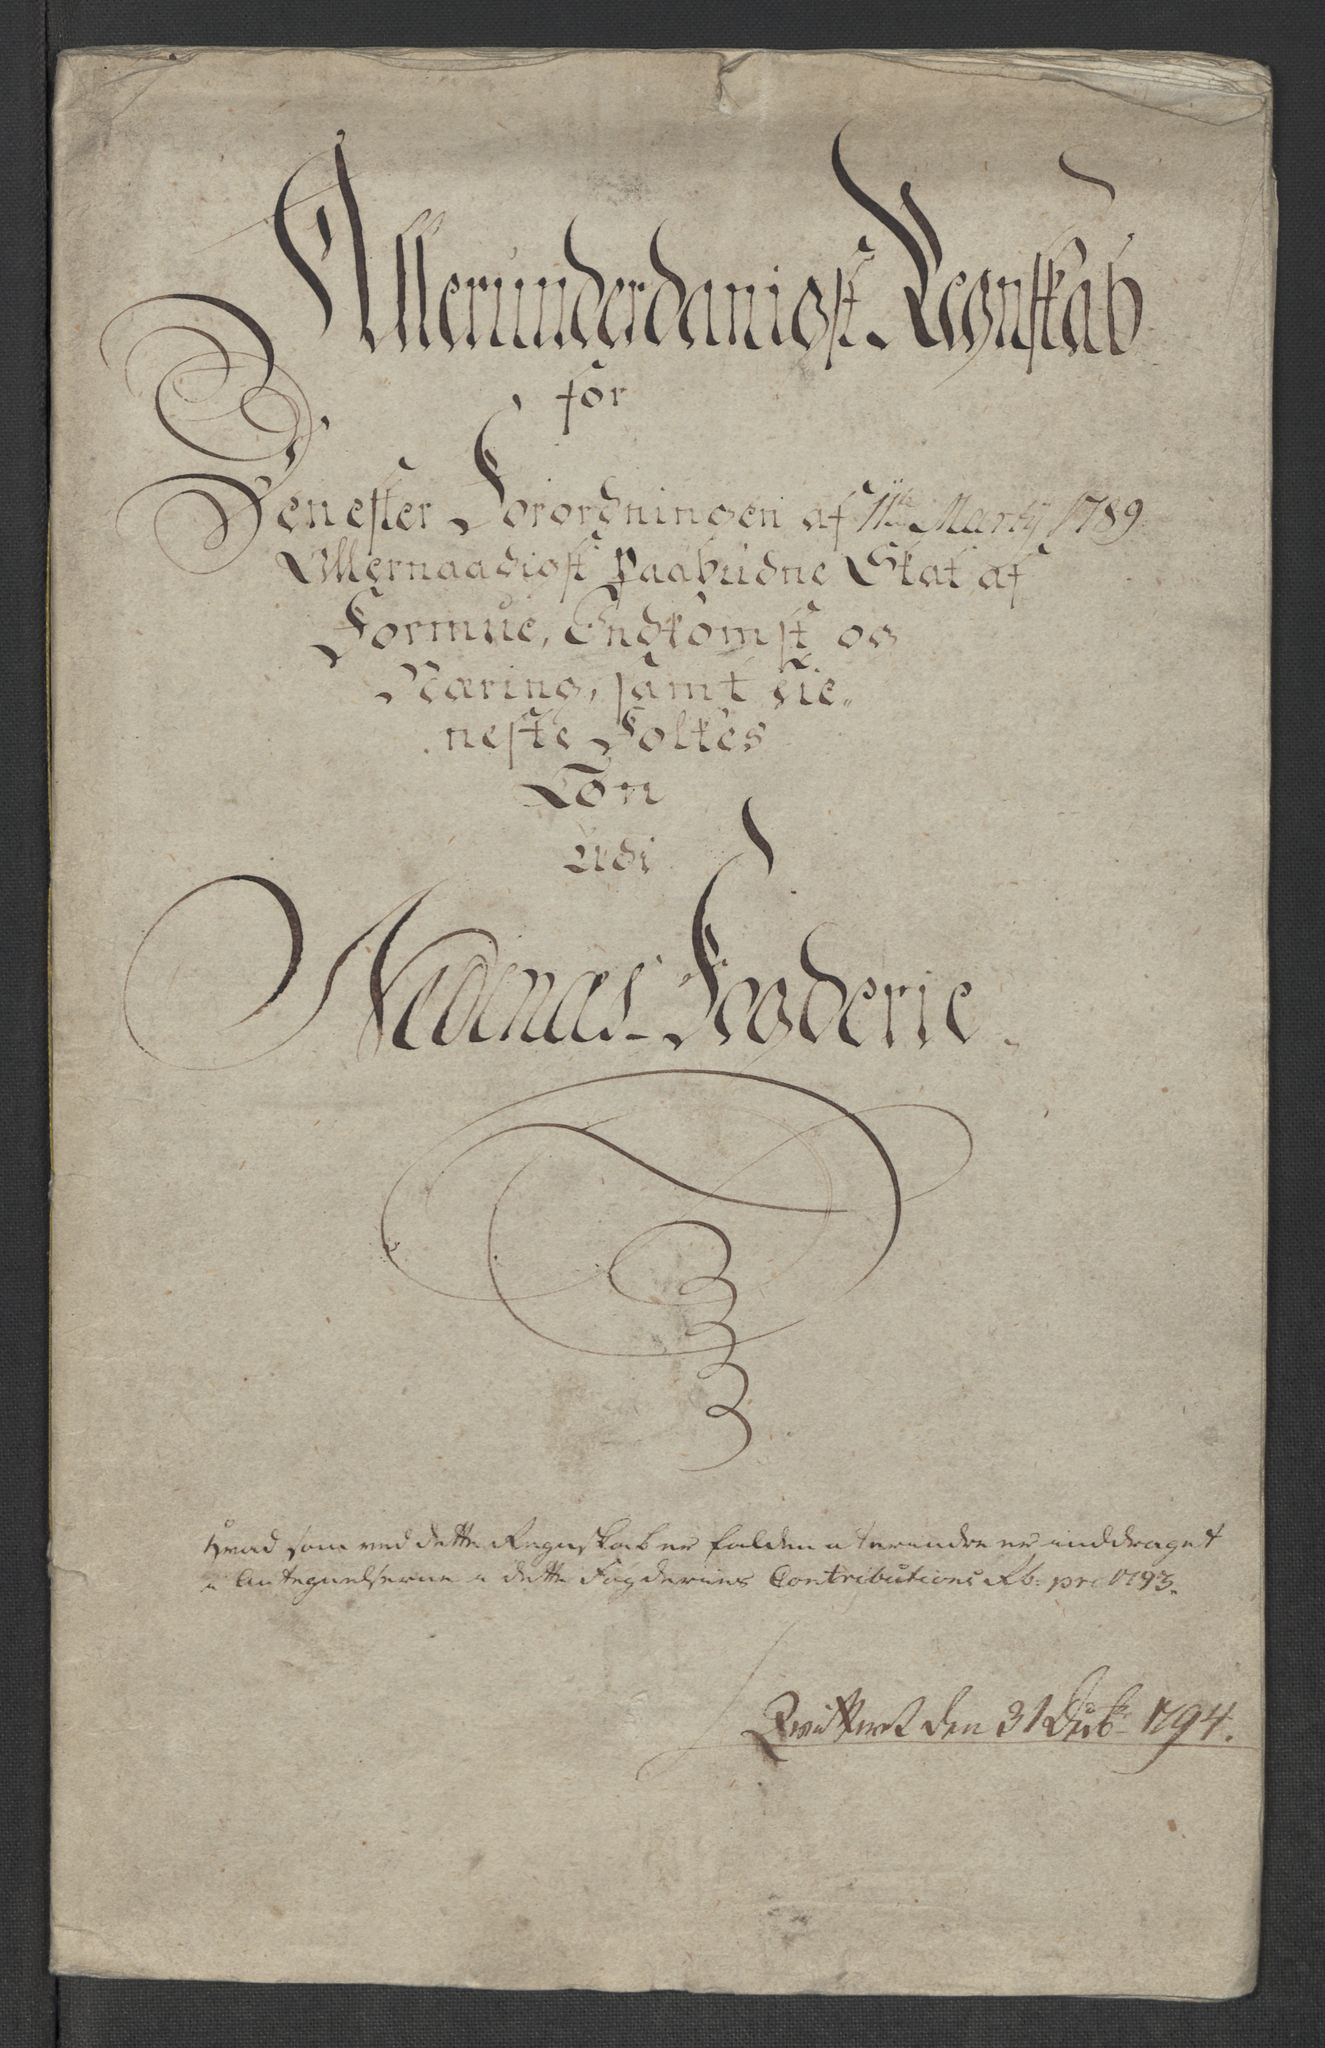 Allerunderdanigst Regnskab
for
Den efter Forordningen af 11te Martij 1789
Allernaadigst Paabudne Skat af
Formue, Indkomst og
Næring, samt tie„
neste Folkes
Løn
udi
Nedenæs Fogderie.
Hvad som ved dette Regnskab er falden at erindre er inddraget
i Antegnelserne i dette Fogderies Contributions Rb. pro 1793.
Qvitteret den 31 Decb. 1794.